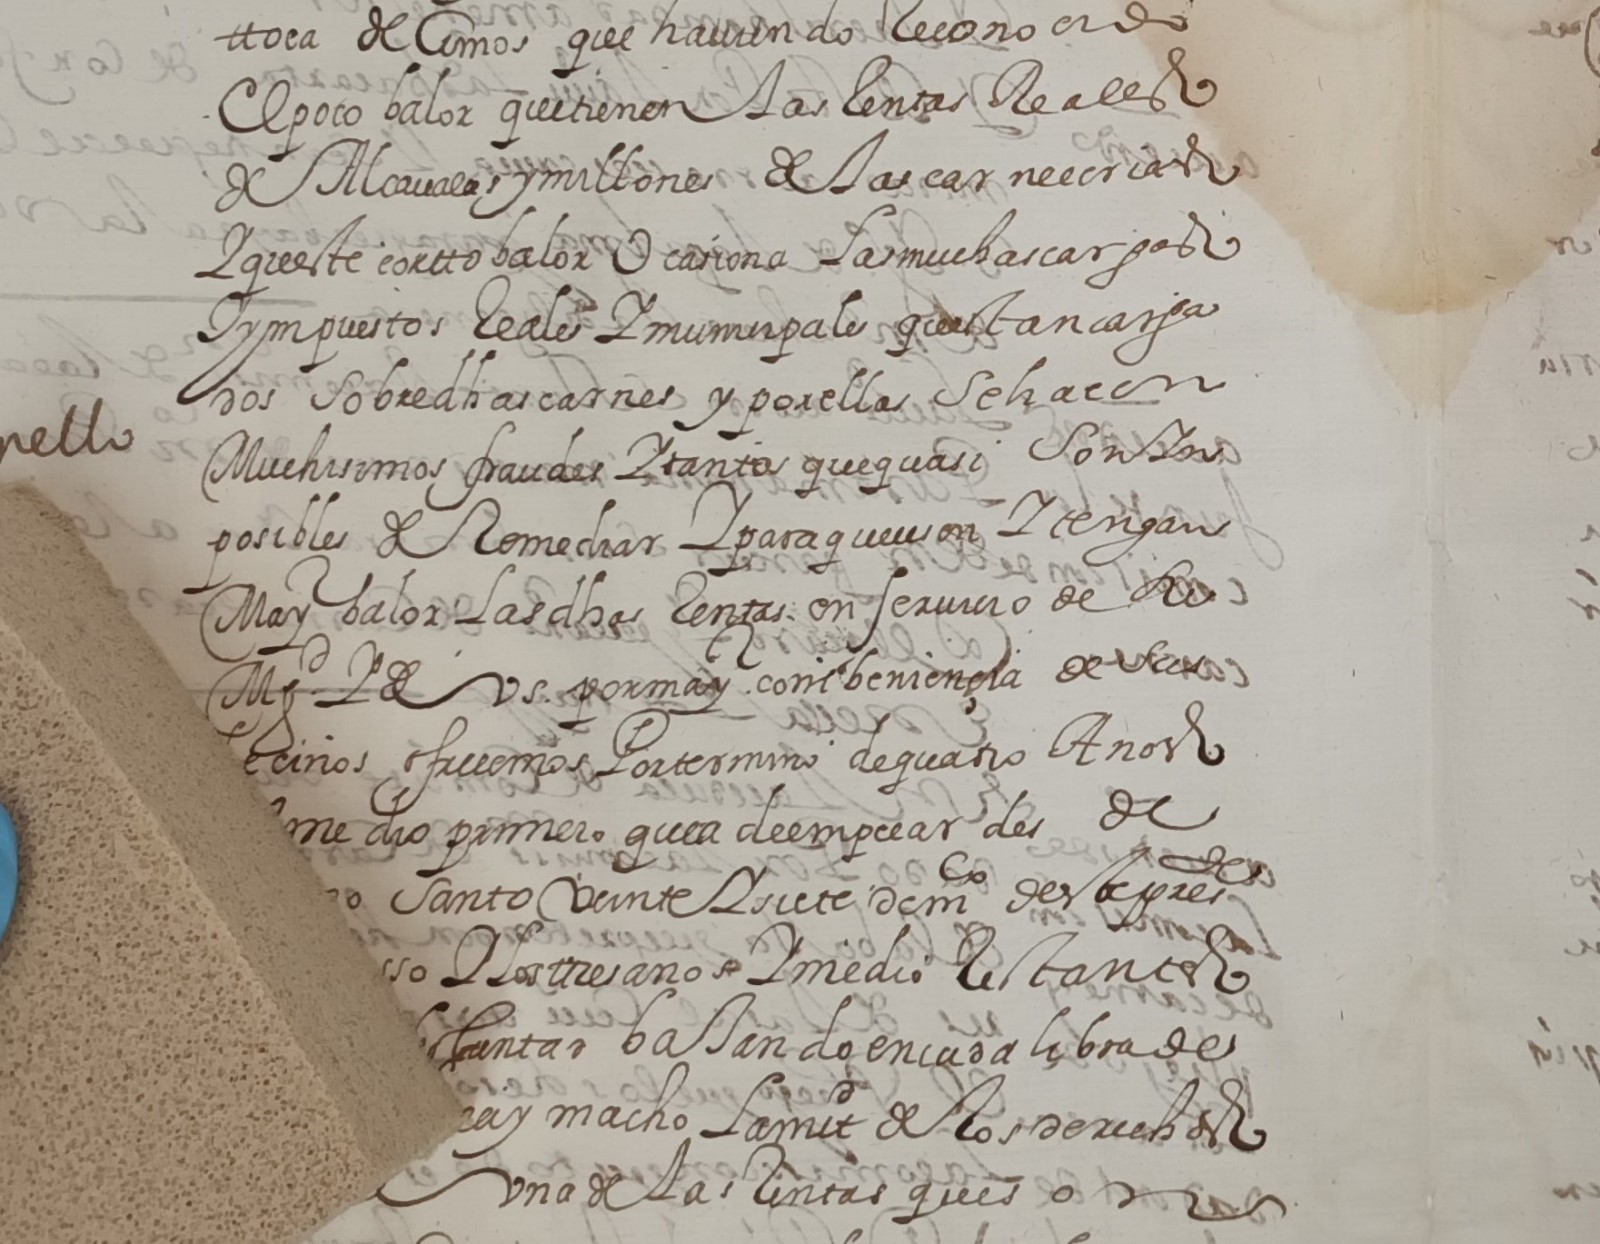 ttoca deCimos que haviendo Reconocido
El poco balor que tienen las Rentas Reales
de Alcaualas y millones de las carnecerias
Y queste cortto balor Ocasiona Las muchas cargas
Y ympuestos Reales Y municipales questan carga
dos sobre dhas carnes y por ellas Se hacen
nello
Muchisimos fraudes Y tantos que quasi Son Yn
posibles de Remediar Y para que Y tengan
May balor Las dhas Rentas en seruicio de Su
Mgd Y de vs. por may combeniençia de sus
ecinos ofrecemos Por termino de quatro Anos
medio primero que a de empecar des de
Santo Veinte Y siete de m Co deste press de
sso Y los tres anos Y medio Restantes
bajando en cada libra de
y macho La mitd de los derechos
vna de las Rentas que son